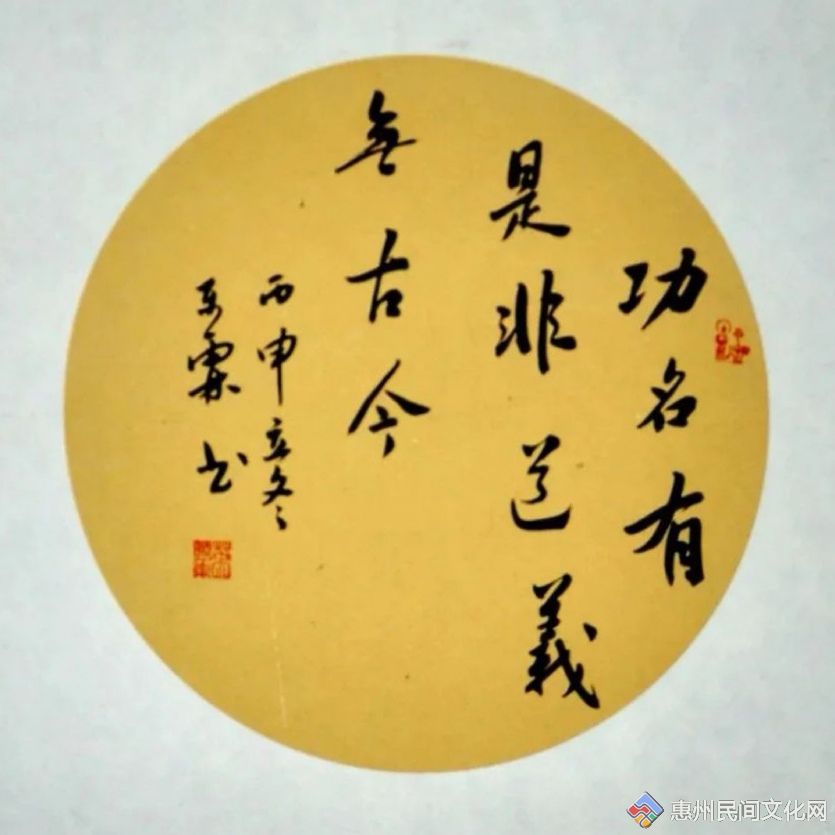 功名有
是非道義
無古今
丙申立冬
东霖书
惠州民间文化网